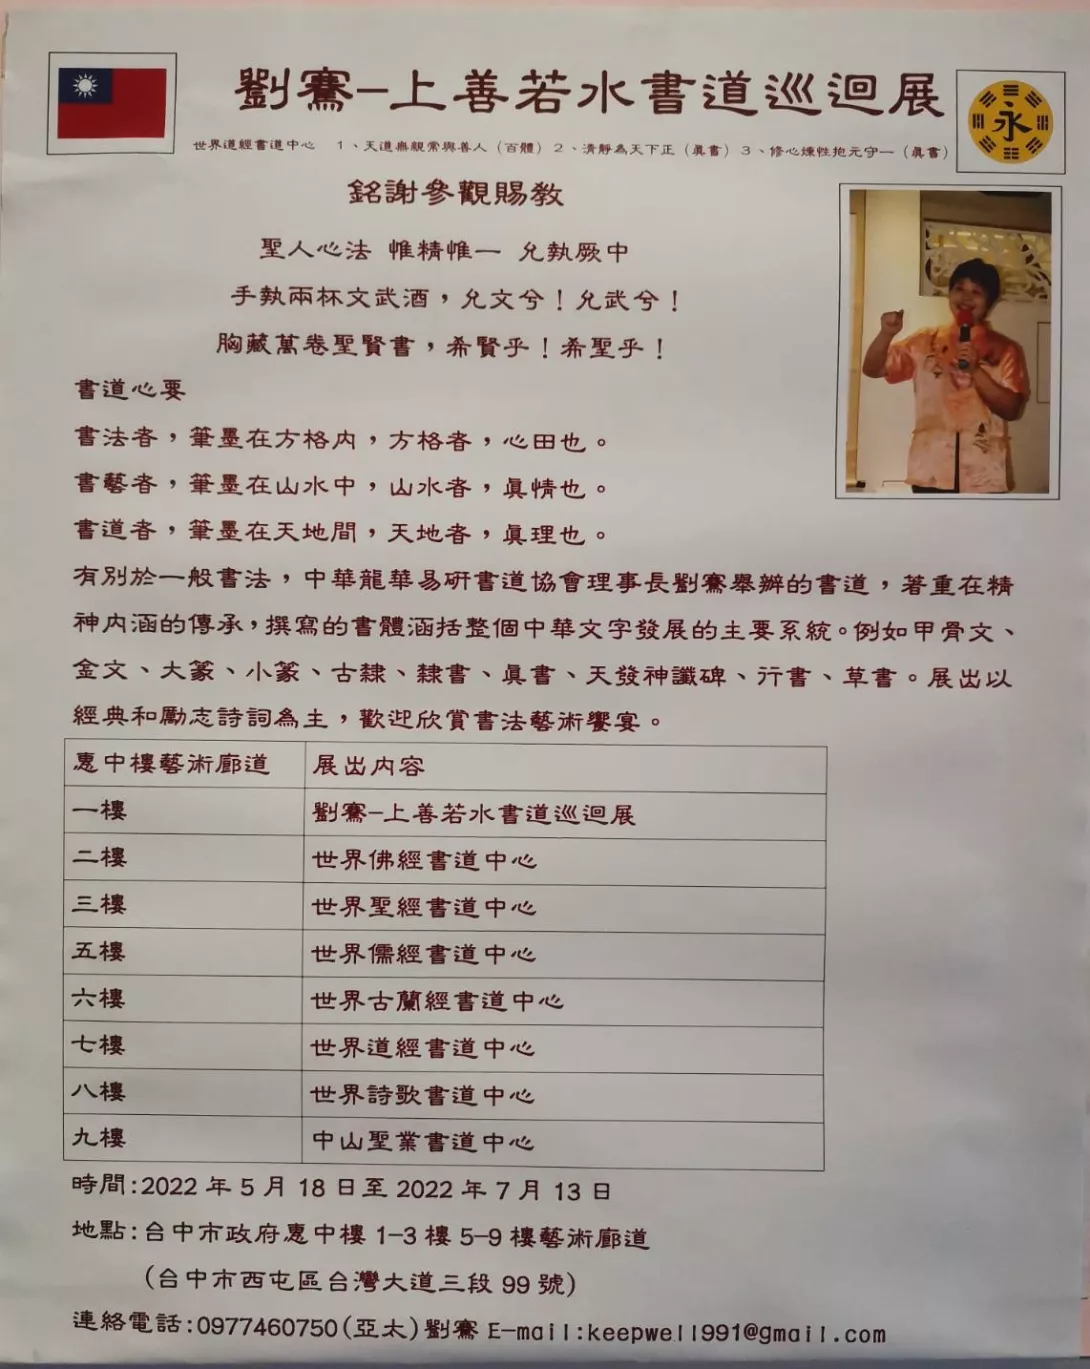 劉騫-上善若水書道巡迴展
永
世界道經書道中心 1、天道無親常與善人(百體) 2、清靜為天下正(眞書) 3、修心煉性抱元守一(眞書)
銘謝參觀賜敎
聖人心法 惟精惟一 允執厥中
手執兩杯文武酒，允文兮！允武兮！
胸藏萬卷聖賢書，希賢乎！希聖乎！
書道心要
書法者，筆墨在方格內，方格者，心田也。
書藝者，筆墨在山水中，山水者，眞情也。
書道者，筆墨在天地間，天地者，眞理也。
有別於一般書法，中華龍華易研書道協會理事長劉騫舉辦的書道，著重在精
神內涵的傳承，撰寫的書體涵括整個中華文字發展的主要系統。例如甲骨文、
金文、大篆、小篆、古隸、隸書、眞書、天發神讖碑、行書、草書。展出以
經典和勵志詩詞為主，歡迎欣賞書法藝術饗宴。
惠中樓藝術廊道 展出內容
一樓 劉騫-上善若水書道巡迴展
二樓 世界佛經書道中心
三樓 世界聖經書道中心
五樓 世界儒經書道中心
六樓 世界古蘭經書道中心
七樓 世界道經書道中心
八樓 世界詩歌書道中心
九樓 中山聖業書道中心
時間:2022 年 5 月 18 日至 2022 年 7 月 13 日
地點:台中市政府惠中樓 1-3 樓 5-9 樓藝術廊道
(台中市西屯區台灣大道三段 99 號)
連絡電話:0977460750(亞太)劉騫 E-mail:keepwell991@gmail.com